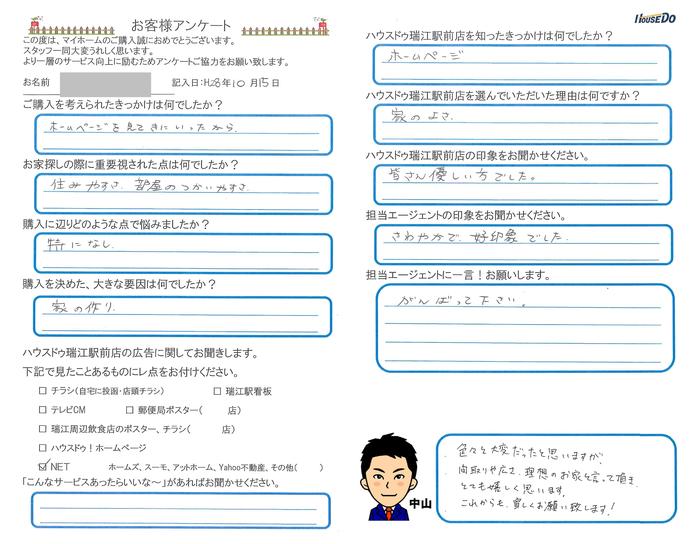 お客様アンケート
この度は、マイホームのご購入誠におめでとうございます。
スタッフ一同大変うれしく思います。
より一層のサービス向上に励むためアンケートご協力をお願い致します。
お名前
記入日:H28年10月15日
ご購入を考えられたきっかけは何でしたか?
ホームページを見てきにいったから。
お家探しの際に重要視された点は何でしたか?
住みやすさ、部屋のつかいやすさ。
購入に辺りどのような点で悩みましたか?
特になし。
購入を決めた、大きな要因は何でしたか?
家の作り。
ハウスドゥ瑞江駅前店の広告に関してお聞きします。
下記で見たことあるものにレ点をお付けください。
□ チラシ(自宅に投函・店頭チラシ) □ 瑞江駅看板
□ テレビCM □ 郵便局ポスター( 店)
□ 瑞江周辺飲食店のポスター、チラシ( 店)
□ ハウスドゥ!ホームページ
☑ NET ホームズ、スーモ、アットホーム、Yahoo不動産、その他( )
「こんなサービスあったらいいな~」があればお聞かせください。
HOUSEDO
ハウスドゥ瑞江駅前店を知ったきっかけは何でしたか?
ホームページ
ハウスドゥ瑞江駅前店を選んでいただいた理由は何ですか?
家のよさ。
ハウスドゥ瑞江駅前店の印象をお聞かせください。
皆さん優しい方でした。
担当エージェントの印象をお聞かせください。
さわやかで、好印象でした。
担当エージェントに一言!お願いします。
がんばって下さい。
中山
色々と大変だったと思いますが、
間取りや広さ、理想のお家と言って頂き、
とても嬉しく思います。
これからも、宜しくお願い致します!